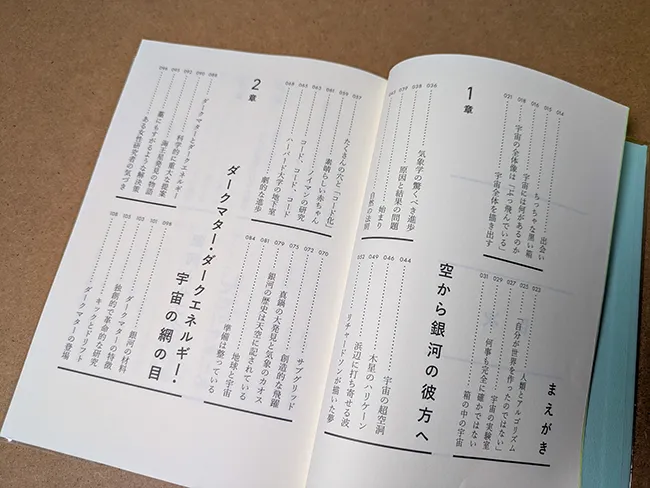 まえがき
出会い 014
ちっちゃな黒い箱 015
宇宙には何があるのか 016
宇宙の全体像は「ぶっ飛んでいる」 018
宇宙全体を描き出す 021
人類とアルゴリズム
「自分が世界を作ったのではない」 025
宇宙の実験室 027
何事も完全に確かではない 029
箱の中の宇宙 031
1章
空から銀河の彼方へ
気象学の驚くべき進歩 036
原因と結果の問題 038
始まり 039
自然の法則
宇宙の超空洞 044
木星のハリケーン 046
浜辺に打ち寄せる波 049
リチャードソンが描いた夢 052
たくさんの穴と「コード化」 057
素晴らしい赤ちゃん 059
ノイマンの研究 061
コード、コード、コード
ハーバード大学の地下室
劇的な進歩
サブグリッド 070
創造的な飛躍 073
真鍋の大発見と気象のカオス 075
銀河の歴史は天空に記されている 079
地球と宇宙 081
準備は整っている 084
2章
ダークマター・ダークエネルギー・
宇宙の網の目
ダークマターとダークエネルギー 088
科学的に重大な提案 090
海王星発見の物語 092
藁にもすがるような解決策
ある女性研究者の気づき
銀河の材料 098
ダークマターの特徴 101
独創的で革命的な研究 102
キックとドリフト
ダークマターの登場 108